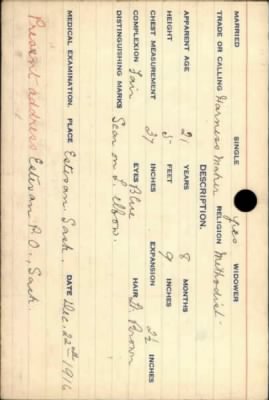 MARRIED SINGLE yes WIDOWER
TRADE OR CALLING Harness Maker RELIGION Methodist.
DESCRIPTION.
APPARENT AGE 21 YEARS 8 MONTHS
HEIGHT 5 FEET 9 INCHES
CHEST MEASUREMENT 37 INCHES EXPANSION 2½ INCHES
COMPLEXION Fair EYES Blue HAIR D. Brown
DISTINGUISHING MARKS Scar on L. elbow.
MEDICAL EXAMINATION. PLACE Estevan Sask. DATE Dec. 22nd 1916
Present address Estevan P.O., Sask.